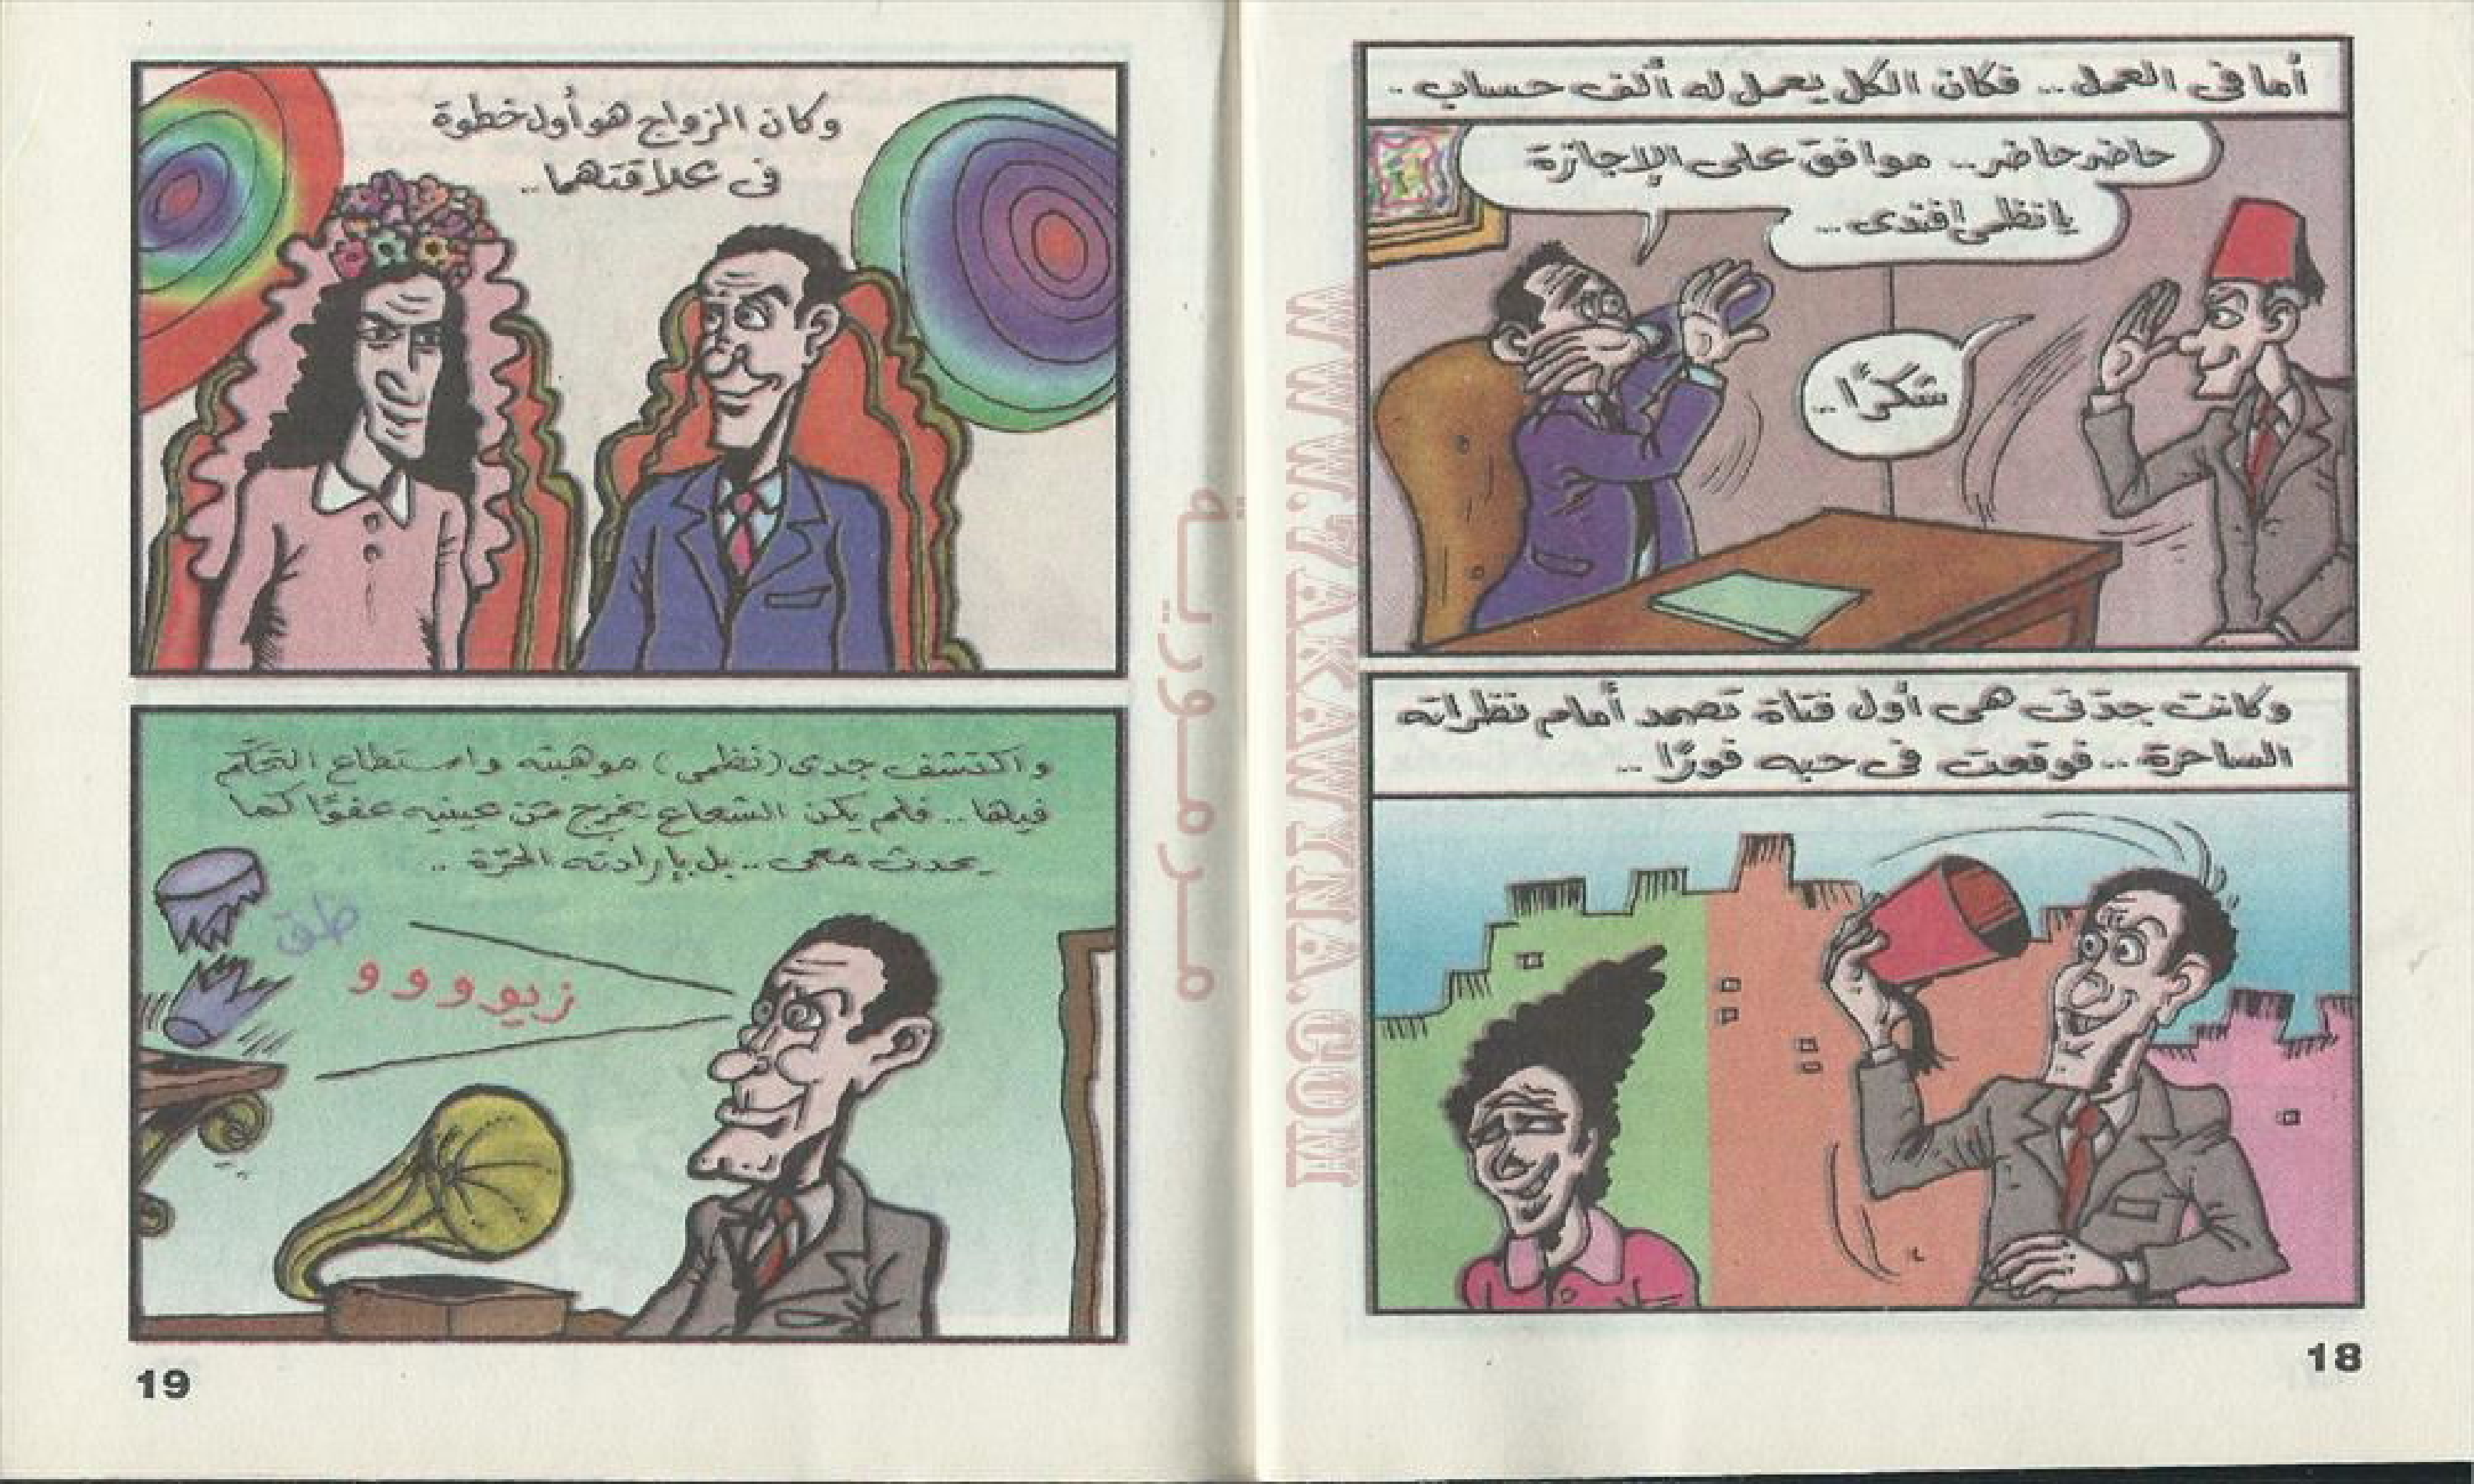 أما في العمل... فكان الكل يعمل له ألف حساب..
حاضر حاضر... موافق على الإجازة
يا نظمى افندى...
شكرًا..
وكانت جدتى هى أول فتاة تصمد أمام نظراته
الساحرة... فوقعت فى حبه فورًا..
18
وكان الزواج هو أول خطوة
فى علاقتهما..
واكتشف جدى (نظمى) موهبته واستطاع التحكّم
فيها.. فلم يكن الشعاع يخرج من عينيه عفوًا كما
يحدث معى.. بل بإرادته الحرّة..
طق
زيوووو
19